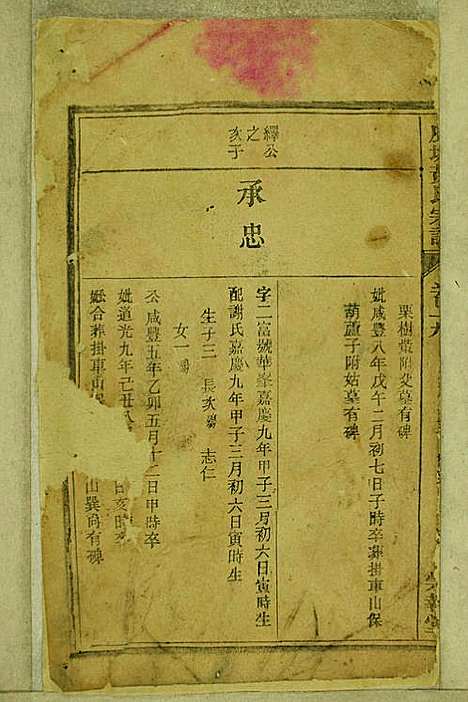 黃氏宗譜
栗樹蔸附父墓有碑
妣咸豐八年戊午二月初七日子時卒葬掛車山保
葫蘆子附姑墓有碑
繹公
之
次子
承忠
字二富號華峯嘉慶九年甲子三月初六日寅時生
配謝氏嘉慶九年甲子三月初六日寅時生
生子三 長次殤 志仁
女一殤
公咸豐五年乙卯五月十二日甲時卒
妣道光九年己丑 日亥時卒
合葬掛車山 山巽向有碑